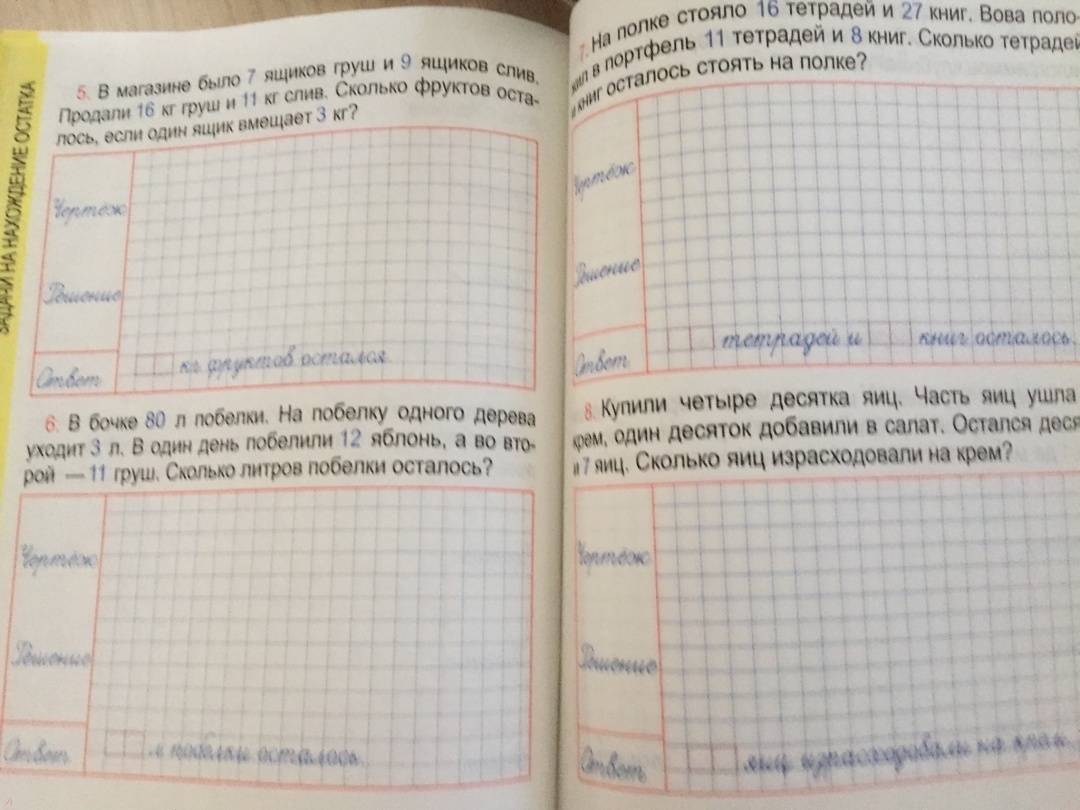 ЗАДАЧИ НА НАХОЖДЕНИЕ ОСТАТКА
5. В магазине было 7 ящиков груш и 9 ящиков слив.
Продали 16 кг груш и 11 кг слив. Сколько фруктов оста-
лось, если один ящик вмещает 3 кг?
Чертёж
Решение
Ответ
кг фруктов остался.
6. В бочке 80 л побелки. На побелку одного дерева
уходит 3 л. В один день побелили 12 яблонь, а во вто-
рой — 11 груш. Сколько литров побелки осталось?
Чертёж
Решение
Ответ
л побелки осталось.
7. На полке стояло 16 тетрадей и 27 книг. Вова поло-
жил в портфель 11 тетрадей и 8 книг. Сколько тетрадей
и книг осталось стоять на полке?
Чертёж
Решение
Ответ
тетрадей и книг осталось.
8. Купили четыре десятка яиц. Часть яиц ушла
крем, один десяток добавили в салат. Остался деся
и 7 яиц. Сколько яиц израсходовали на крем?
Чертёж
Решение
Ответ
яиц израсходовали на крем.